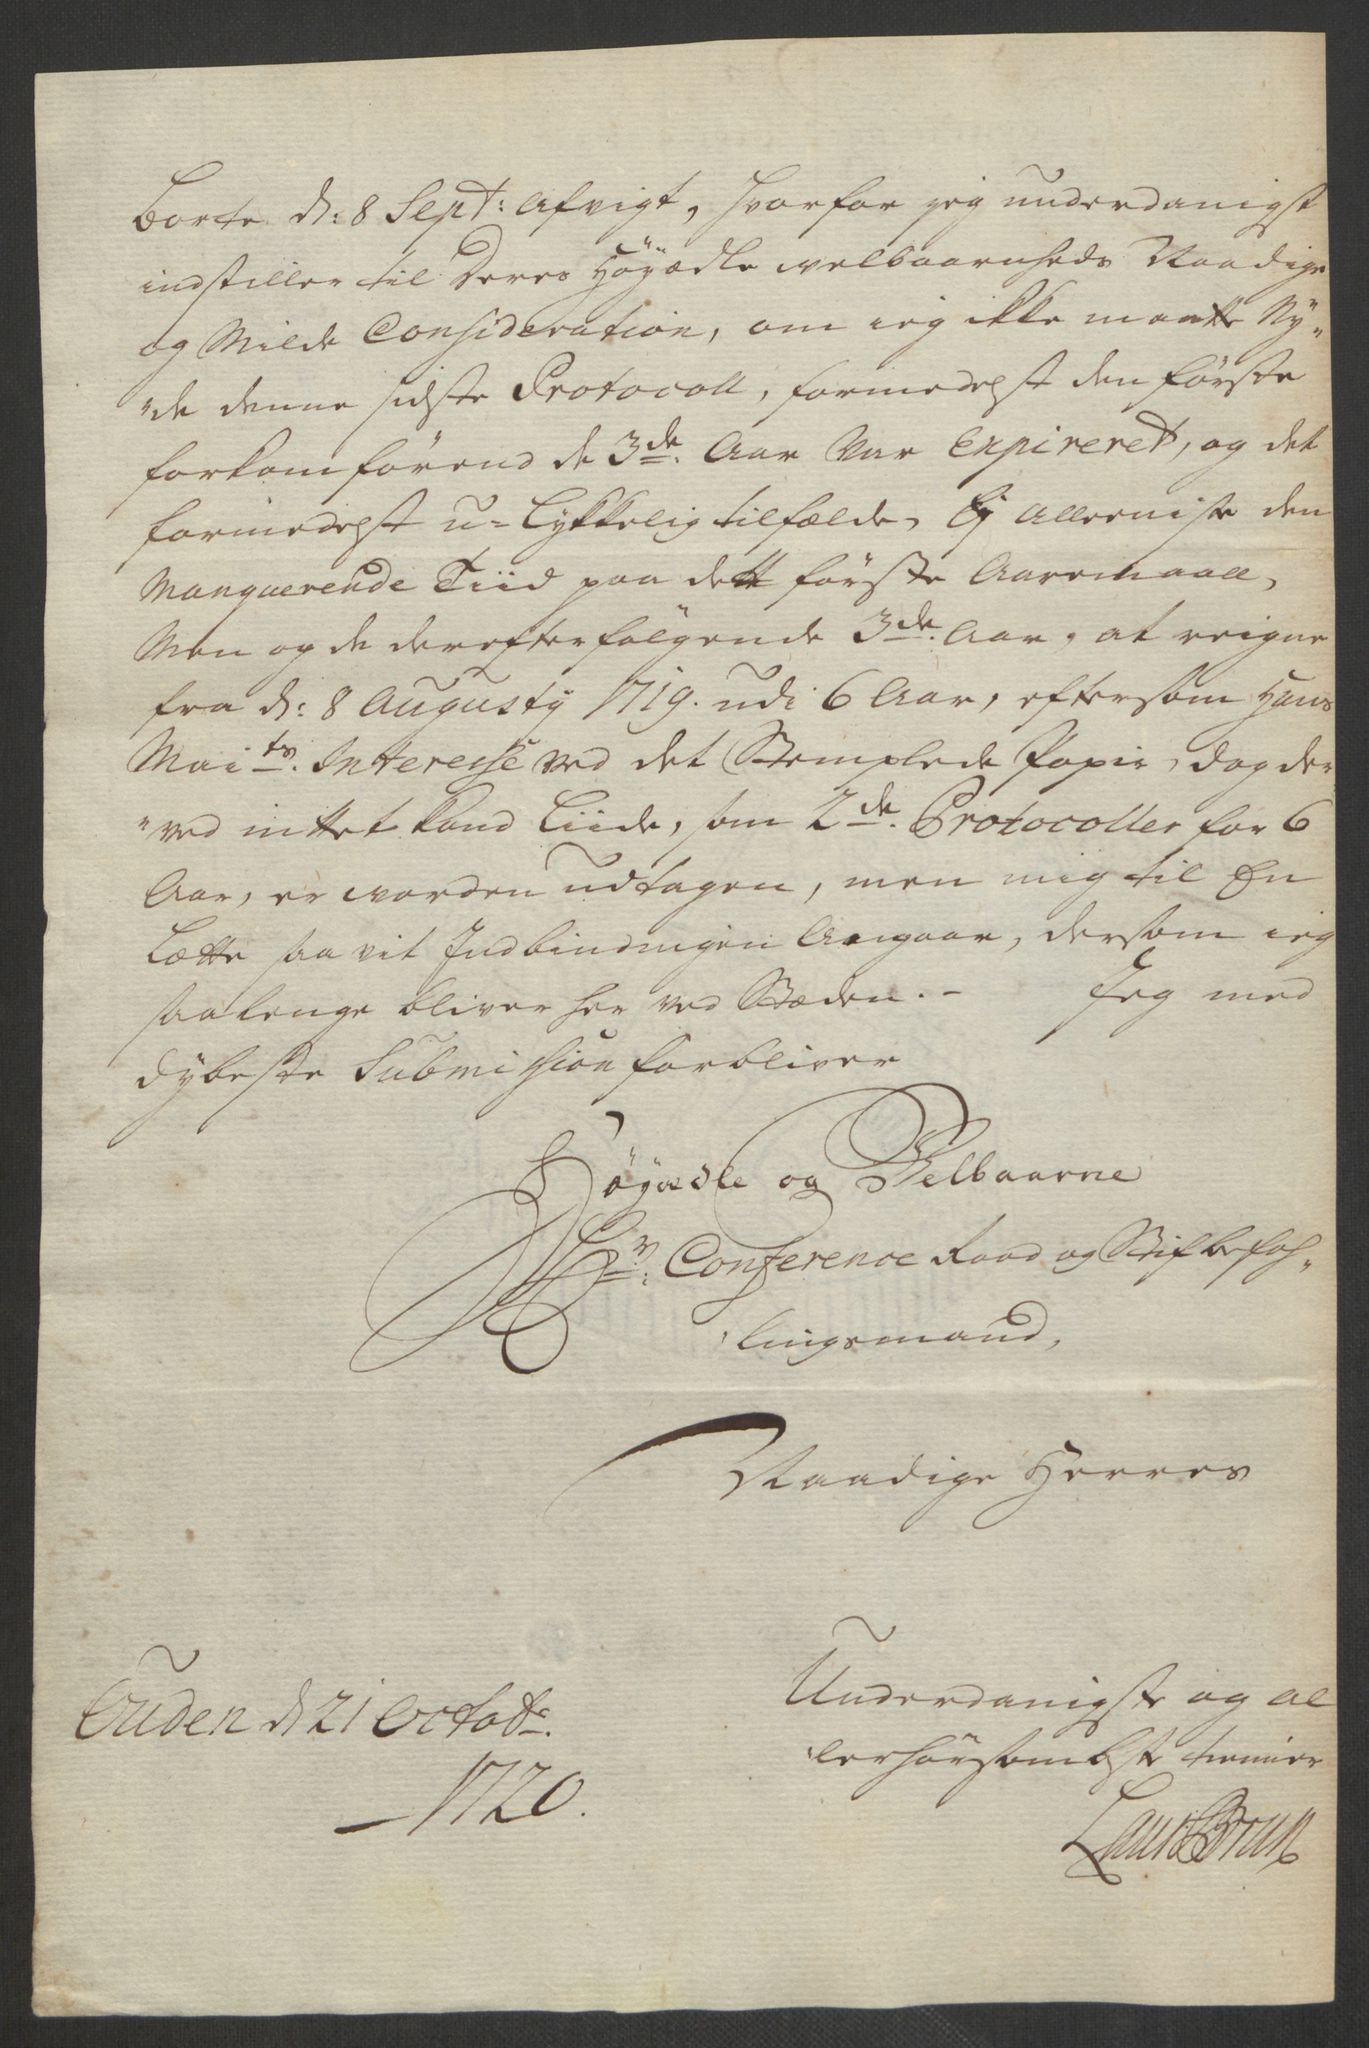 borte d: 8 Sept: Afvigt, hvorfor jeg underdanigst
indstiller til Deres Höyædle welbaarenheds Naadige
og Milde Consideration, om ieg ikke maatte Ny„
„de denne sidste Protocoll, formedelst den förste
forkom förend de 3de. Aar var Expireret, og det
formedelst u-lykkelig tilfælde, Ej alleeniste den
Manquerende Tiid paa dett förste Aaremaall,
Men og de derefterfölgende 3de. Aar, at reigne
fra d: 8 Augusty 1719. udi 6 Aar, eftersom Hans
Maits. Interesse ved det Stemplede Papir, dog der
„ved intet kand Liide, som 2de. Protocoller for 6
Aar, er worden udtagen, men mig til En
Lætte saa vit Indbindingen Angaar, dersom ieg
saa lenge bliver her ved Stæden. – Jeg med
dybeste Submission forbliver
Höyædle og Velbaarne
Hr: Conference Raad og Stiftbefah„
„lingsmand,
Naadige Herres
Underdanigste og al
lerhörsombste tienner
Laur Brun
Guden d 21 Octobr.
1720.